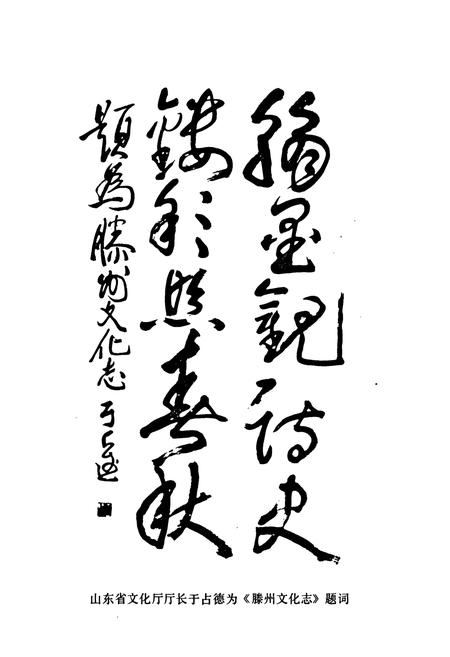 翰墨观诗史
镂彩照春秋
题为滕州文化志 于占德
山东省文化厅厅长于占德为《滕州文化志》题词